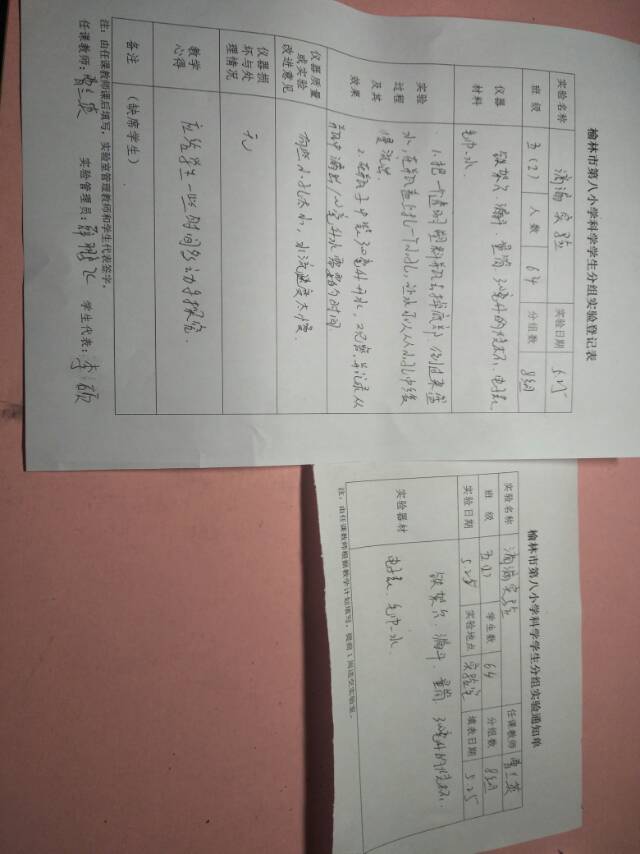 榆林市第八小学科学学生分组实验登记表
实验名称 滴漏实验 实验日期 5.25
班级 五(2) 人数 64 分组数 8组
仪器材料 铁架台、漏斗、量筒、300毫升的烧杯、电子表、
毛巾、水
实验过程及其效果 1、把一个透明塑料瓶去掉底部,倒过来装
水,在瓶盖上扎一个小孔,让水可以从小孔中缓
慢流出。
2、在瓶子中装300毫升水,观察并记录从
瓶中滴出10毫升水需要的时间
仪器质量或实验改进意见 有些小孔太小,水流速度太慢
仪器损坏与处理情况 无
教学心得 应给学生一些时间多动手探究
备注 (缺席学生)
注:由任课教师课后填写,实验室管理教师和学生代表签字。
任课教师: 实验管理员: 学生代表:李硕
榆林市第八小学科学学生分组实验通知单
实验名称 滴漏实验 任课教师
班级 五(2) 学生数 64 分组数 8组
实验日期 5.25 实验地点 实验室 填表日期 5.25
实验器材 铁架台、漏斗、量筒、300毫升的烧杯、
电子表、毛巾、水
注:由任课教师根据教学计划填写,提前1周送交实验室。